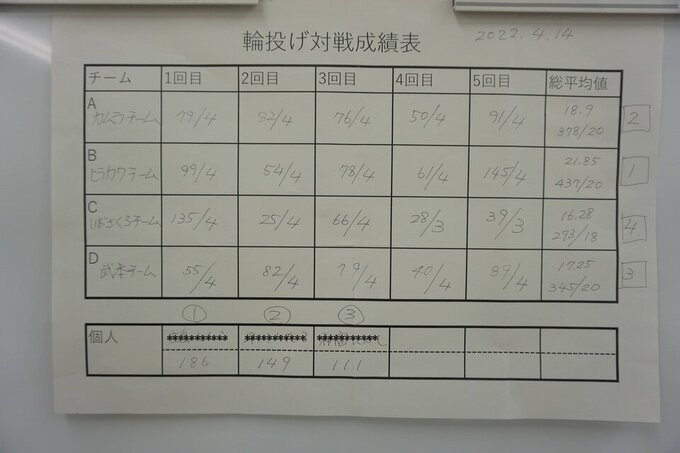 輪投げ対戦成績表 2022.4.14
チーム 1回目 2回目 3回目 4回目 5回目 総平均値
A カムラチーム 79/4 82/4 76/4 50/4 91/4 18.9 378/20 2
B ヒラカワチーム 99/4 54/4 78/4 61/4 145/4 21.85 437/20 1
C チーム 135/4 25/4 66/4 28/3 39/3 16.28 293/18 4
D 武本チーム 55/4 82/4 79/4 40/4 89/4 17.25 345/20 3
① ② ③
個人
186 149 111